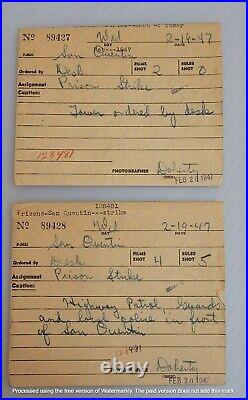 Nº 89427 Wed 2-19-47
DAY DATE
PLACE San Quentin
Ordered By Desk FILMS SHOT 2 BULBS SHOT 0
Assignment Prison Strike
Caption:
Tower ordered by desk
128481
PHOTOGRAPHER Doherty
FEB 20 1947
128481
Prisons-San Quentin---strike
Nº 89428 Wed 2-19-47
DAY DATE
PLACE San Quentin
Ordered By Desk FILMS SHOT 4 BULBS SHOT 5
Assignment Prison Strike
Caption:
Highway Patrol, Guards
and local police in front
of San Quentin
128481
Doherty
FEB 20 194
Processed using the free version of Watermarkly. The paid version does not add this mark.